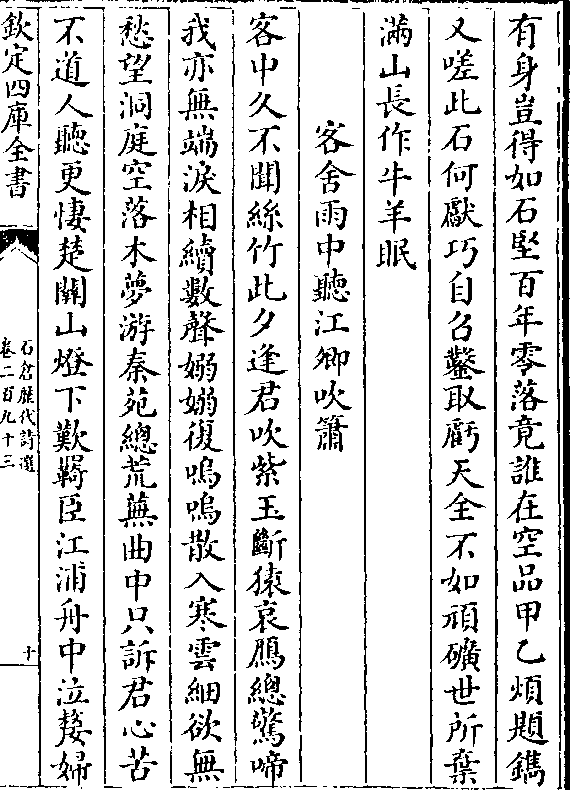 有身豈得如石堅百年零落竟誰在空品甲乙煩題鐫
又嗟此石何獻巧自召鑿取虧天全不如頑礦世所棄
滿山長作牛羊眠
客舍雨中聽江卿吹簫
客中久不聞絲竹此夕逢君吹紫玉斷猿哀鴈總驚啼
我亦無端淚相續數聲嫋嫋復嗚嗚散入寒雲細欲無
愁望洞庭空落木夢游秦苑總荒蕪曲中只訴君心苦
不道人聽更悽楚關山燈下歎羇臣江浦舟中泣嫠婦
欽定四庫全書
石倉歷代詩選
卷二百九十三
十